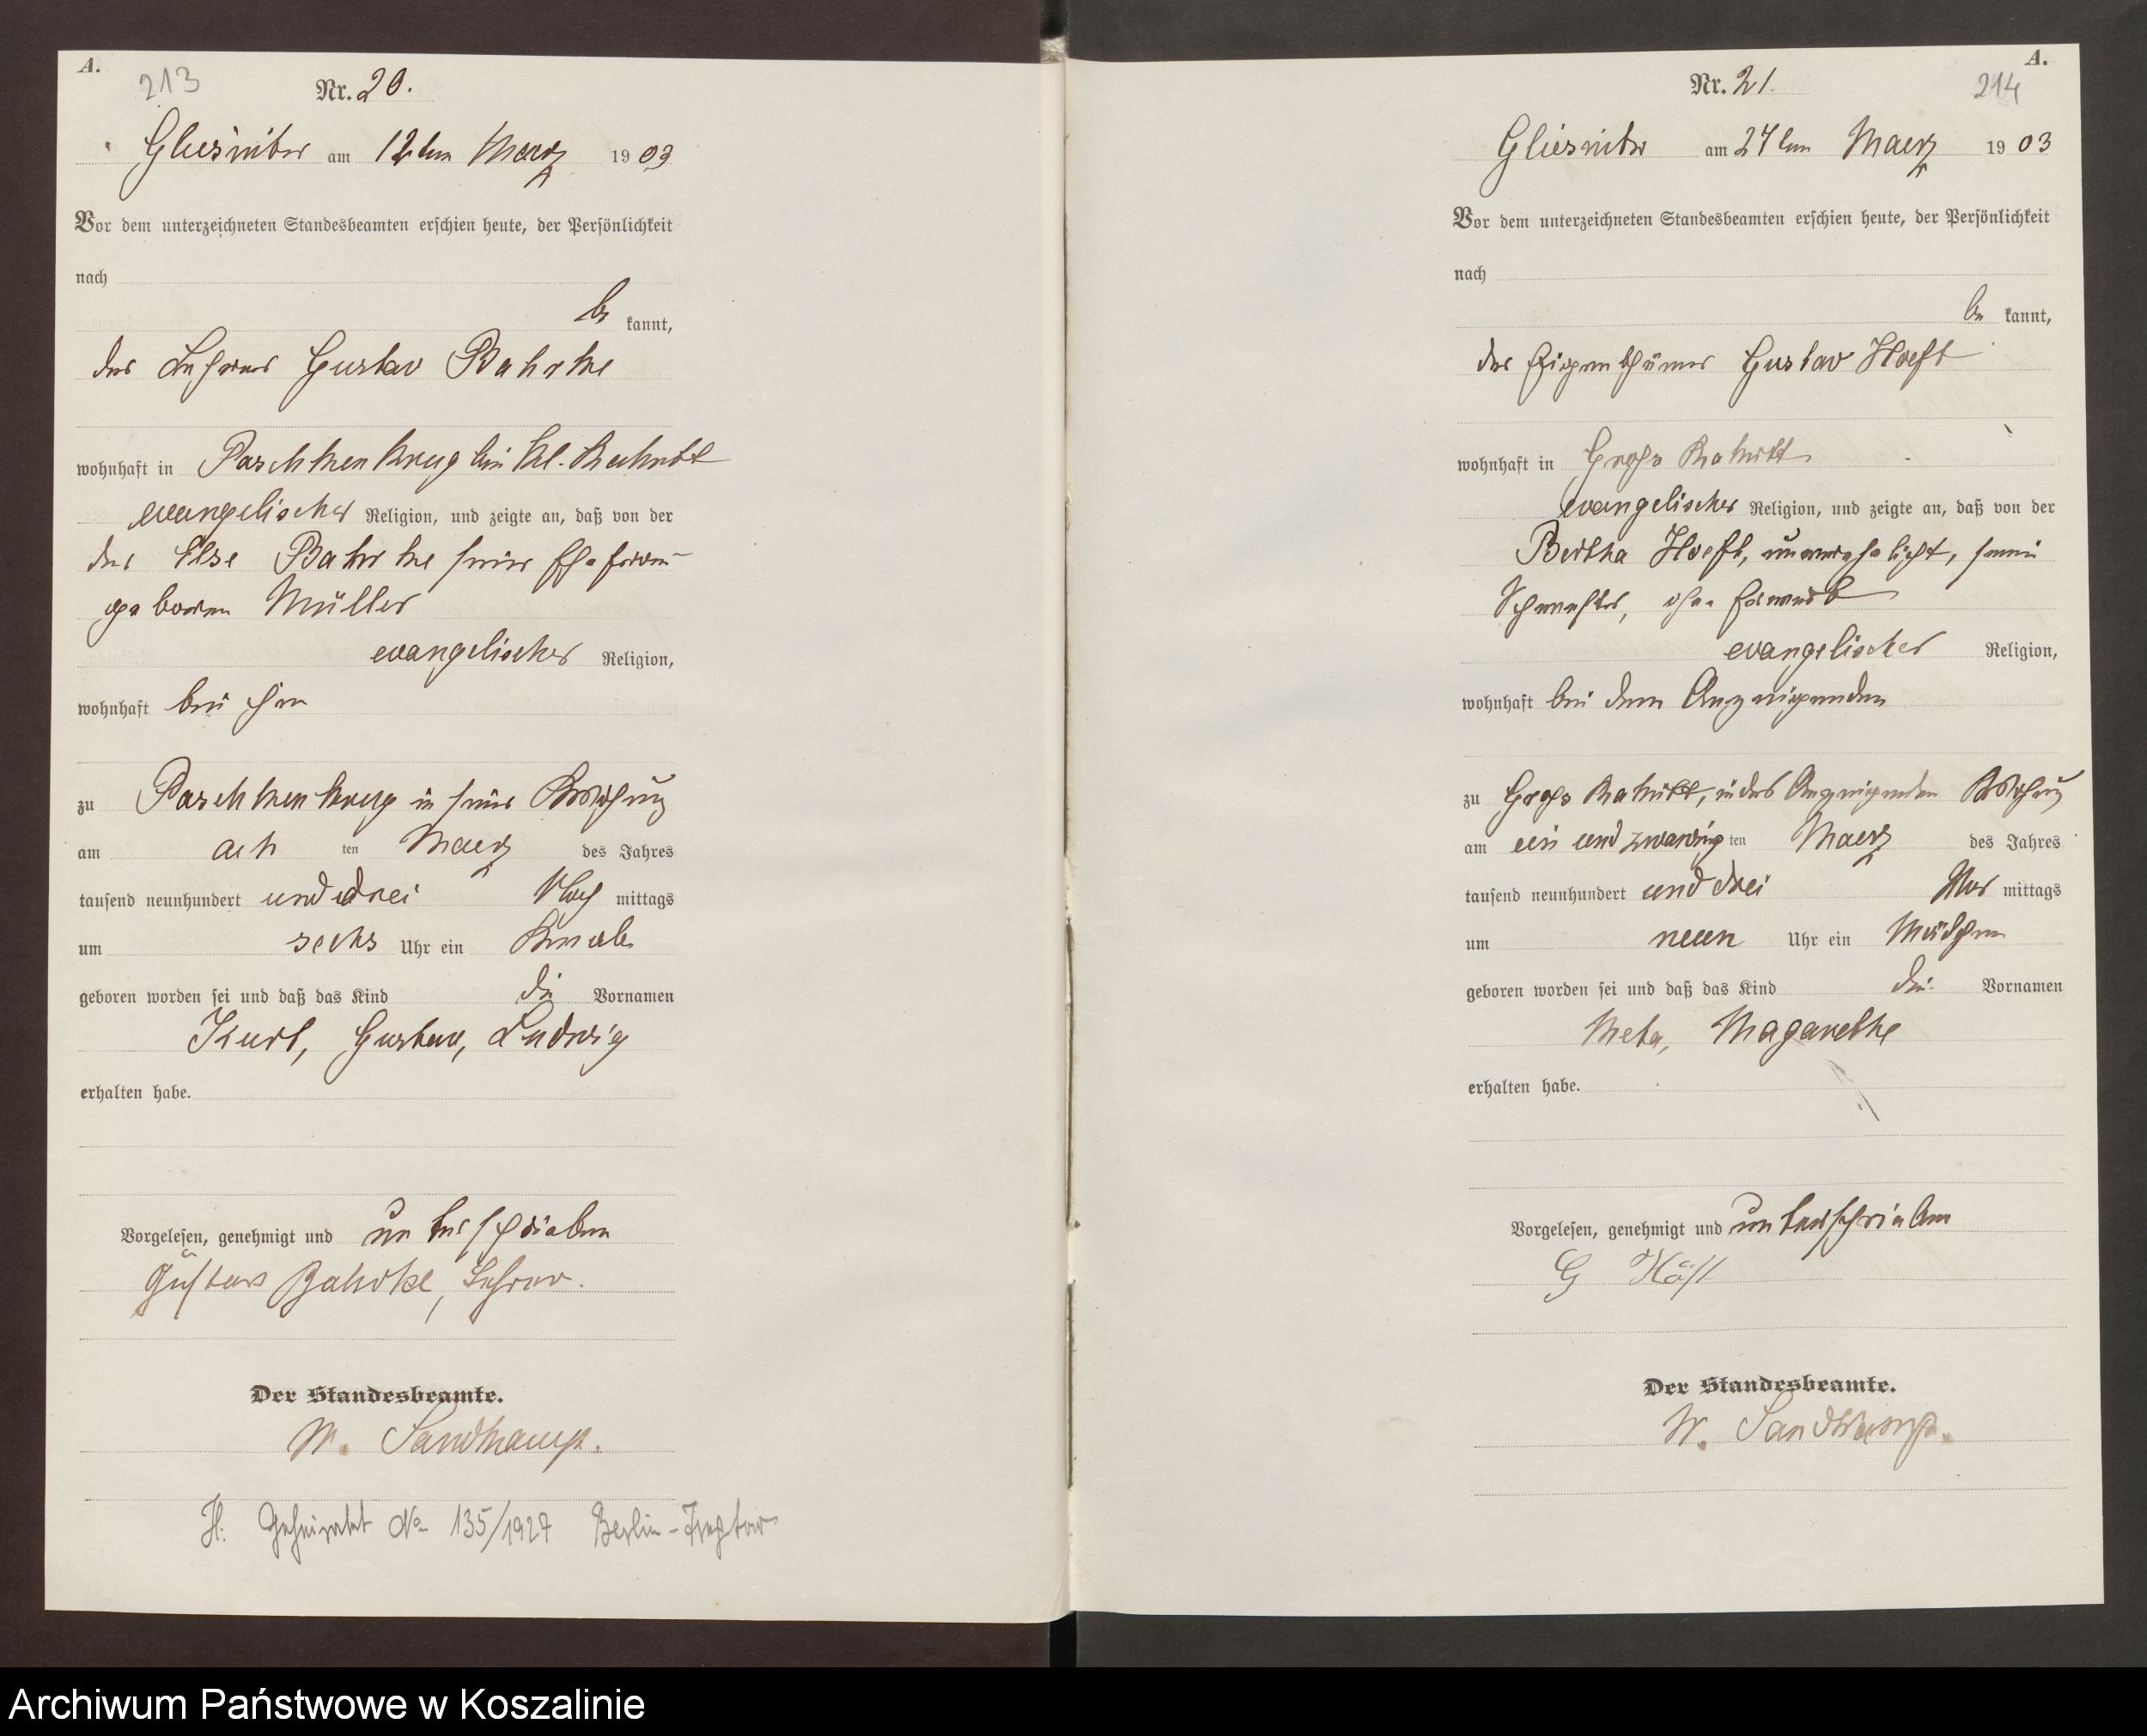 A.
213
Nr. 20.
Gliesnitz am 12ten Maerz 1903
Vor dem unterzeichneten Standesbeamten erschien heute, der Persönlichkeit
nach
be kannt,
der Lehrer Gustav Bahrke
wohnhaft in Paschkenkrug bei Kl. Rakitt
evangelischer Religion, und zeigte an, daß von der
der Else Bahrke seiner Ehefrau
geboren Müller
evangelischer Religion,
wohnhaft bei ihm
zu Paschkenkrug in seiner Wohnung
am ach ten Maerz des Jahres
tausend neunhundert und drei Nach mittags
um sechs Uhr ein Knabe
geboren worden sei und daß das Kind die Vornamen
Kurt, Gustav, Ludwig
erhalten habe.
Vorgelesen, genehmigt und unterschrieben
Gustav Bahrke, Lehrer.
Der Standesbeamte.
W. Sandkamp.
H. Geheiratet No 135/1927 Berlin-Treptow
A.
Nr. 21.
214
Gliesnitz am 24ten Maerz 1903
Vor dem unterzeichneten Standesbeamten erschien heute, der Persönlichkeit
nach
be kannt,
der Eigenthümer Gustav Hoeft
wohnhaft in Gross Rakitt
evangelischer Religion, und zeigte an, daß von der
Bertha Hoeft, unverehelicht, seine
Schwester, ohne Erwerb
evangelischer Religion,
wohnhaft bei dem Anzeigenden
zu Gross Rakitt, in des Anzeigenden Wohnung
am ein und zwanzig ten Maerz des Jahres
tausend neunhundert und drei Vor mittags
um neun Uhr ein Mädchen
geboren worden sei und daß das Kind die Vornamen
Meta, Magarethe
erhalten habe.
Vorgelesen, genehmigt und unterschrieben
G Höft
Der Standesbeamte.
W. Sandkamp.
Archiwum Państwowe w Koszalinie